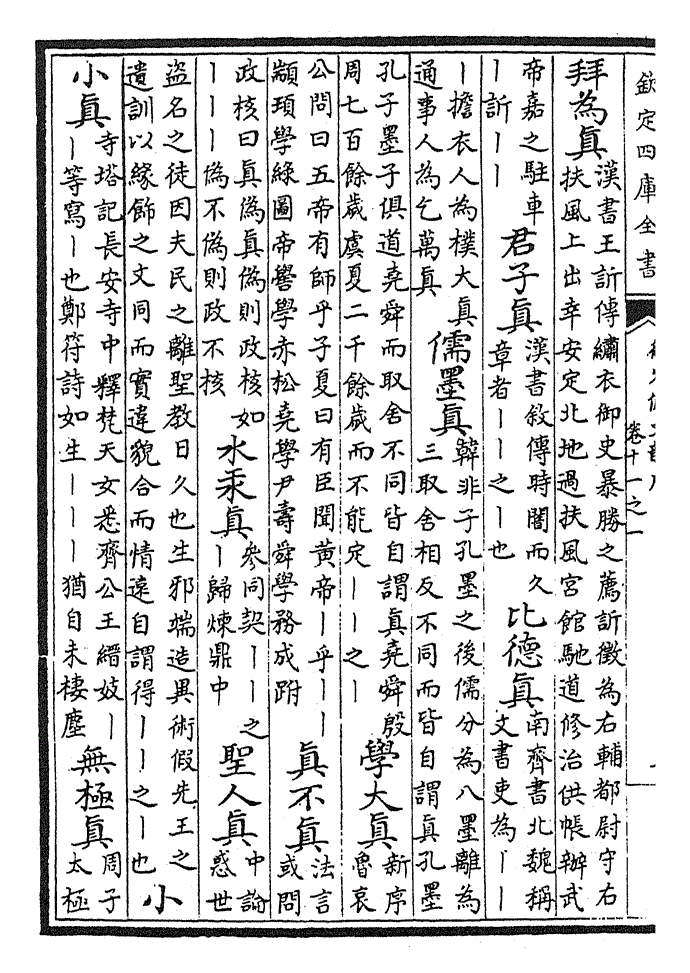 欽定四庫全書
卷十一之一
拜為真
漢書王訢傳繡衣御史暴勝之薦訢徵為右輔都尉守右
扶風上出幸安定北地過扶風宮館馳道修治供帳辦武
帝嘉之駐車
丨訢丨丨
君子真
漢書敘傳時闇而久
章者丨丨之丨也
比德真
南齊書北魏稱
文書吏為丨丨
丨擔衣人為樸大真
通事人為乞萬真
儒墨真
韓非子孔墨之後儒分為八墨離為
三取舍相反不同而皆自謂真孔墨
孔子墨子俱道堯舜而取舍不同皆自謂真堯舜殷
周七百餘歲虞夏二千餘歲而不能定丨丨之丨
學大真
新序
魯哀
公問曰五帝有師乎子夏曰有臣聞黃帝丨乎丨丨
顓頊學綠圖帝嚳學赤松堯學尹壽舜學務成跗
真不真
法言
或問
政核曰真偽真偽則政核如
丨丨丨偽不偽則政不核
水汞真
參同契丨丨之
丨歸煉鼎中
聖人真
中論
惑世
盜名之徒因夫民之離聖教日久也生邪端造異術假先王之
遺訓以緣飾之文同而實違貌合而情遠自謂得丨丨之丨也
小
小真
寺塔記長安寺中釋梵天女悉齊公王縉妓丨
丨等寫丨也鄭符詩如生丨丨丨猶自未棲塵
無極真
周子
太極